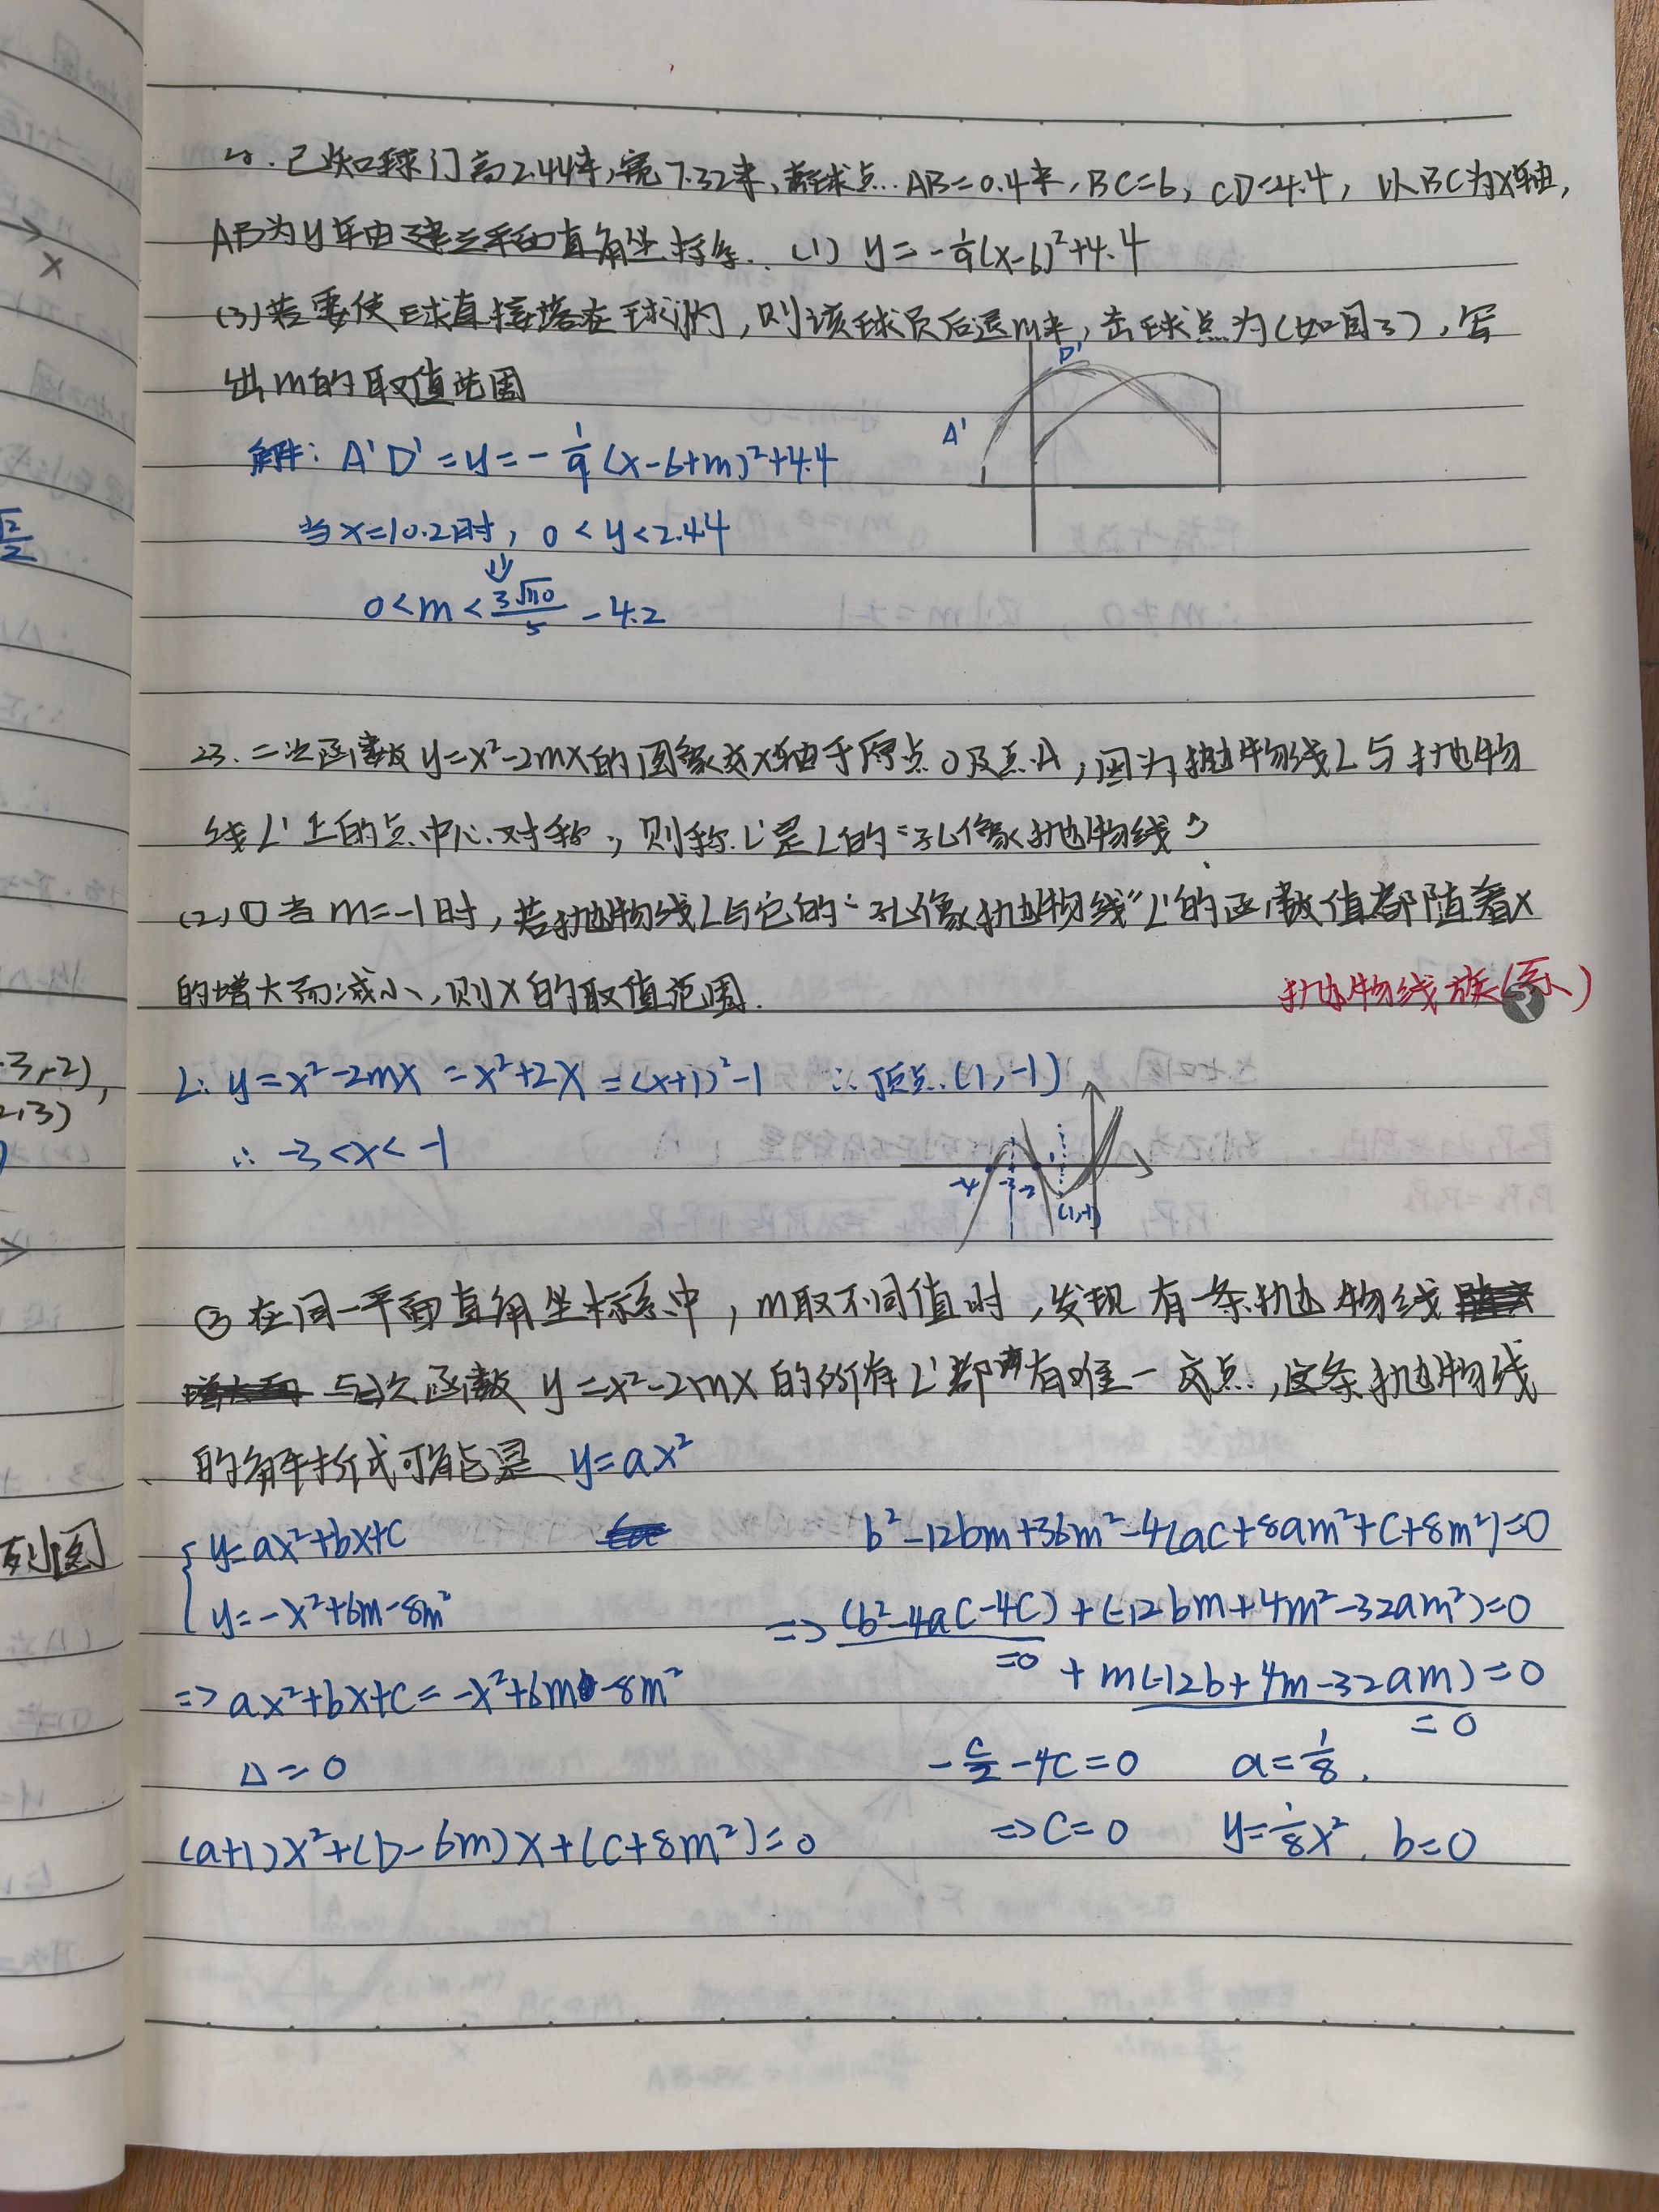 已知球门高2.44米,宽7.32米,击球点..AB=0.4米,BC=6,CD=4.4,以BC为x轴,
AB为y轴建立平面直角坐标系.(1) y=-1/9(x-6)²+4.4
(3)若要使球直接落在球门内,则该球员后退m米,击球点为(如图3),写
出m的取值范围
D'
A'
解:A'D'=y=-1/9(x-6+m)²+4.4
当x=10.2时,0<y<2.44
⇓
0<m<3√110/5-4.2
23.二次函数y=x²-2mx的图象交x轴于原点O及点A,因为抛物线L与抛物
线L'上的点中心对称,则称L'是L的"孔像抛物线"
(2)①当m=-1时,若抛物线L与它的"孔像抛物线"L'的函数值都随着x
的增大而减小,则x的取值范围.
抛物线族(系)
L:y=x²-2mx=x²+2x=(x+1)²-1 ∴顶点.(1,-1)
∴-3<x<-1
-4 -3 -2 (1,-1)
② 在同一平面直角坐标系中,m取不同值时,发现有一条抛物线
与二次函数y=x²-2mx的所有L'都有唯一交点,这条抛物线
的解析式可能是 y=ax²
{y=ax²+bx+c
y=-x²+6m-8m²
=>ax²+bx+c=-x²+6m-8m²
Δ=0
(a+1)x²+(b-6m)x+(c+8m²)=0
b²-12bm+36m²-4(ac+8am²+c+8m²)=0
=>(b²-4ac-4c)+(-12bm+4m²-32am²)=0
=0 +m(-12b+4m-32am)=0
=0
-c/2-4c=0 a=1/8.
=>c=0 y=1/8x². b=0
-3,-2),
2,3)
列图
x
√2/2